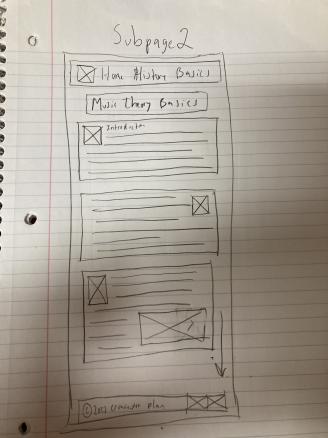 Subpage 2
Home History Basics
Music Theory Basics
Introduction
© 2022 plan